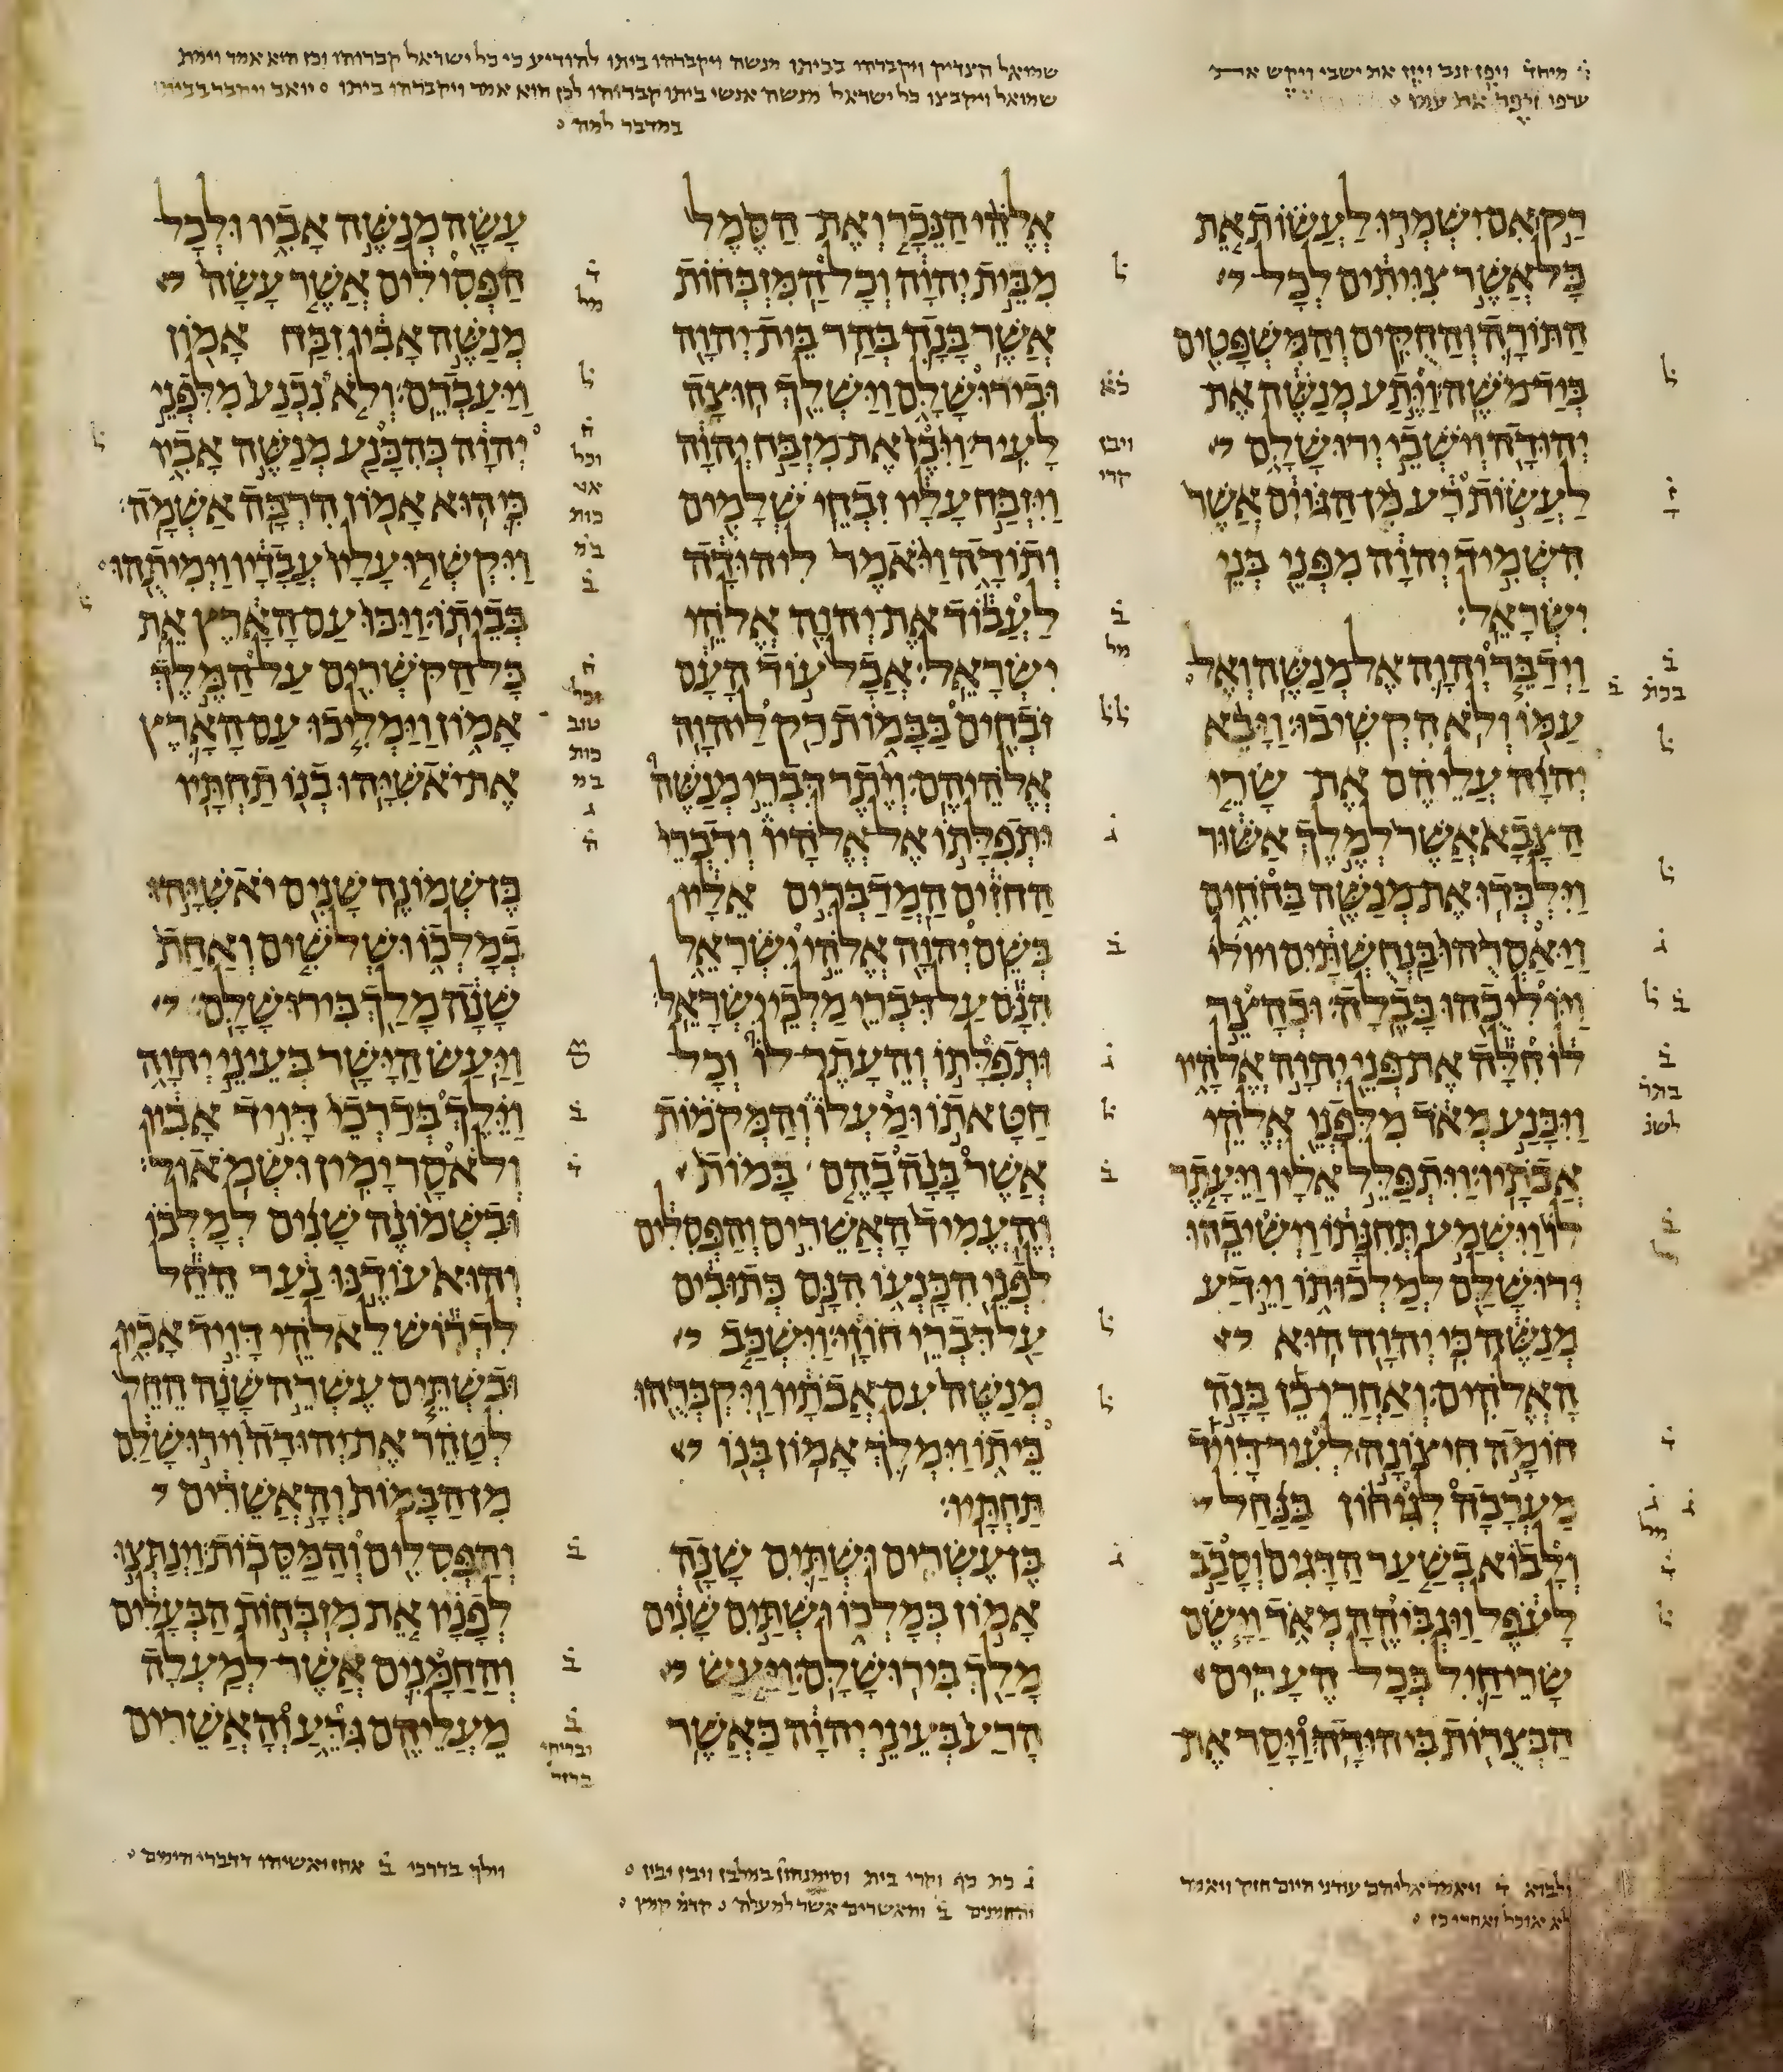 שמואל הצדיק ויקברהו בביתו מנשה ויקברהו ביתו להודיע כי כל ישראל קברוהו וכן הוא אמר וימת
שמואל ויקבצו כל ישראל מנשה אנשי ביתו קברוהו לכן הוא אמר ויקברהו ביתו
במדבר למה
רַק אִם יִשְׁמְרוּ לַעֲשׂוֹת אֵת
כָּל אֲשֶׁר צִוִּיתִים לְכָל
הַתּוֹרָה וְהַחֻקִּים וְהַמִּשְׁפָּטִים
בְּיַד מֹשֶׁה׃ וַיֶּתַע מְנַשֶּׁה אֶת
יְהוּדָה וְיֹשְׁבֵי יְרוּשָׁלִָם
לַעֲשׂוֹת רָע מִן הַגּוֹיִם אֲשֶׁר
הִשְׁמִיד יְהוָה מִפְּנֵי בְּנֵי
יִשְׂרָאֵל׃
וַיְדַבֵּר יְהוָה אֶל מְנַשֶּׁה וְאֶל
עַמּוֹ וְלֹא הִקְשִׁיבוּ׃ וַיָּבֵא
יְהוָה עֲלֵיהֶם אֶת שָׂרֵי
הַצָּבָא אֲשֶׁר לְמֶלֶךְ אַשּׁוּר
וַיִּלְכְּדוּ אֶת מְנַשֶּׁה בַּחֹחִים
וַיַּאַסְרֻהוּ בַּנְחֻשְׁתַּיִם
וַיּוֹלִיכֻהוּ בָּבֶלָה׃ וּכְהָצֵר
לוֹ חִלָּה אֶת פְּנֵי יְהוָה אֱלֹהָיו
וַיִּכָּנַע מְאֹד מִלִּפְנֵי אֱלֹהֵי
אֲבֹתָיו׃ וַיִּתְפַּלֵּל אֵלָיו וַיֵּעָתֶר
לוֹ וַיִּשְׁמַע תְּחִנָּתוֹ וַיְשִׁיבֵהוּ
יְרוּשָׁלִַם לְמַלְכוּתוֹ וַיֵּדַע
מְנַשֶּׁה כִּי יְהוָה הוּא
הָאֱלֹהִים׃ וְאַחֲרֵי כֵן בָּנָה
חוֹמָה חִיצוֹנָה לְעִיר דָּוִיד
מַעְרָבָה לְגִיחוֹן בַּנַּחַל
וְלָבוֹא בְשַׁעַר הַדָּגִים וְסָבַב
לָעֹפֶל וַיַּגְבִּיהֶהָ מְאֹד וַיָּשֶׂם
שָׂרֵי חַיִל בְּכָל הֶעָרִים
הַבְּצֻרוֹת בִּיהוּדָה׃ וַיָּסַר אֶת
אֱלֹהֵי הַנֵּכָר וְאֶת הַסֶּמֶל
מִבֵּית יְהוָה וְכָל הַמִּזְבְּחוֹת
אֲשֶׁר בָּנָה בְּהַר בֵּית יְהוָה
וּבִירוּשָׁלִָם וַיַּשְׁלֵךְ חוּצָה
לָעִיר׃ וַיִּכֶן אֶת מִזְבַּח יְהוָה
וַיִּזְבַּח עָלָיו זִבְחֵי שְׁלָמִים
וְתוֹדָה וַיֹּאמֶר לִיהוּדָה
לַעֲבוֹד אֶת יְהוָה אֱלֹהֵי
יִשְׂרָאֵל׃ אֲבָל עוֹד הָעָם
זֹבְחִים בַּבָּמוֹת רַק לַיהוָה
אֱלֹהֵיהֶם׃ וְיֶתֶר דִּבְרֵי מְנַשֶּׁה
וּתְפִלָּתוֹ אֶל אֱלֹהָיו וְדִבְרֵי
הַחֹזִים הַמְדַבְּרִים אֵלָיו
בְּשֵׁם יְהוָה אֱלֹהֵי יִשְׂרָאֵל
הִנָּם עַל דִּבְרֵי מַלְכֵי יִשְׂרָאֵל׃
וּתְפִלָּתוֹ וְהֵעָתֶר לוֹ וְכָל
חַטָּאתוֹ וּמַעְלוֹ וְהַמְּקֹמוֹת
אֲשֶׁר בָּנָה בָהֶם בָּמוֹת
וְהֶעֱמִיד הָאֲשֵׁרִים וְהַפְּסִלִים
לִפְנֵי הִכָּנְעוֹ הִנָּם כְּתוּבִים
עַל דִּבְרֵי חוֹזָי׃ וַיִּשְׁכַּב
מְנַשֶּׁה עִם אֲבֹתָיו וַיִּקְבְּרֻהוּ
בֵּיתוֹ וַיִּמְלֹךְ אָמוֹן בְּנוֹ
תַּחְתָּיו׃
בֶּן עֶשְׂרִים וּשְׁתַּיִם שָׁנָה
אָמוֹן בְּמָלְכוֹ וּשְׁתַּיִם שָׁנִים
מָלַךְ בִּירוּשָׁלִָם׃ וַיַּעַשׂ
הָרַע בְּעֵינֵי יְהוָה כַּאֲשֶׁר
עָשָׂה מְנַשֶּׁה אָבִיו וּלְכָל
הַפְּסִילִים אֲשֶׁר עָשָׂה
מְנַשֶּׁה אָבִיו זִבַּח אָמוֹן
וַיַּעַבְדֵם׃ וְלֹא נִכְנַע מִלִּפְנֵי
יְהוָה כְּהִכָּנַע מְנַשֶּׁה אָבִיו
כִּי הוּא אָמוֹן הִרְבָּה אַשְׁמָה׃
וַיִּקְשְׁרוּ עָלָיו עֲבָדָיו וַיְמִיתֻהוּ
בְּבֵיתוֹ׃ וַיַּכּוּ עַם הָאָרֶץ אֵת
כָּל הַקֹּשְׁרִים עַל הַמֶּלֶךְ
אָמוֹן וַיַּמְלִיכוּ עַם הָאָרֶץ
אֶת יֹאשִׁיָּהוּ בְנוֹ תַּחְתָּיו
בֶּן שְׁמוֹנֶה שָׁנִים יֹאשִׁיָּהוּ
בְמָלְכוֹ וּשְׁלֹשִׁים וְאַחַת
שָׁנָה מָלַךְ בִּירוּשָׁלִָם׃
וַיַּעַשׂ הַיָּשָׁר בְּעֵינֵי יְהוָה
וַיֵּלֶךְ בְּדַרְכֵי דָּוִיד אָבִיו
וְלֹא סָר יָמִין וּשְׂמֹאול׃
וּבִשְׁמוֹנֶה שָׁנִים לְמָלְכוֹ
וְהוּא עוֹדֶנּוּ נַעַר הֵחֵל
לִדְרוֹשׁ לֵאלֹהֵי דָּוִיד אָבִיו
וּבִשְׁתֵּים עֶשְׂרֵה שָׁנָה הֵחֵל
לְטַהֵר אֶת יְהוּדָה וִירוּשָׁלִַם
מִן הַבָּמוֹת וְהָאֲשֵׁרִים
וְהַפְּסִלִים וְהַמַּסֵּכוֹת׃ וַיְנַתְּצוּ
לְפָנָיו אֵת מִזְבְּחוֹת הַבְּעָלִים
וְהַחַמָּנִים אֲשֶׁר לְמַעְלָה
מֵעֲלֵיהֶם גִּדֵּעַ וְהָאֲשֵׁרִים
ולבוא ויאמר אליהם עודני היום חזק ויאמר
לא אוכל ואחרי כן
ג כת כף וקרי בית
והחמנים ב והאשרים אשר למעלה קדמ קמץ
וילך בדרכי ב אחז ויאשיהו דדברי הימים